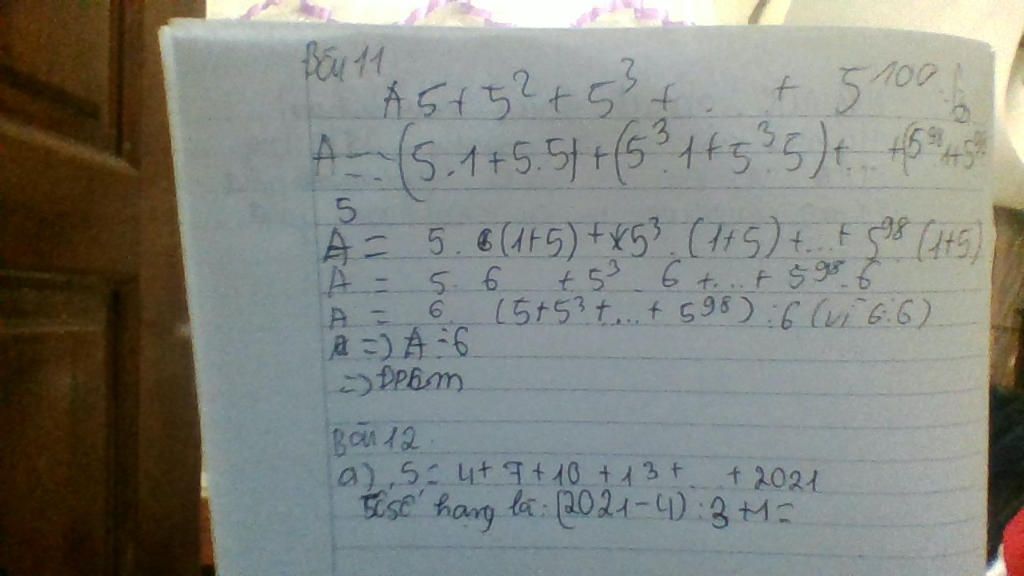 Bài 11
A 5 + 5² + 5³ + . . + 5¹⁰⁰ 6
A = (5.1 + 5.5) + (5³.1 + 5³.5) + ... + (5⁹⁸.1 + 5⁹⁸
5
A = 5. (1+5) + 5³. (1+5) + ... + 5⁹⁸ (1+5)
A = 5. 6 + 5³. 6 + ... + 5⁹⁸. 6
A = 6. (5 + 5³ + ... + 5⁹⁸) ⋮ 6 (vì 6 ⋮ 6)
=) A ⋮ 6
=) ĐPCm
Bài 12
a) S = 4 + 7 + 10 + 13 + ... + 2021
số hạng là: (2021 - 4) : 3 + 1 =